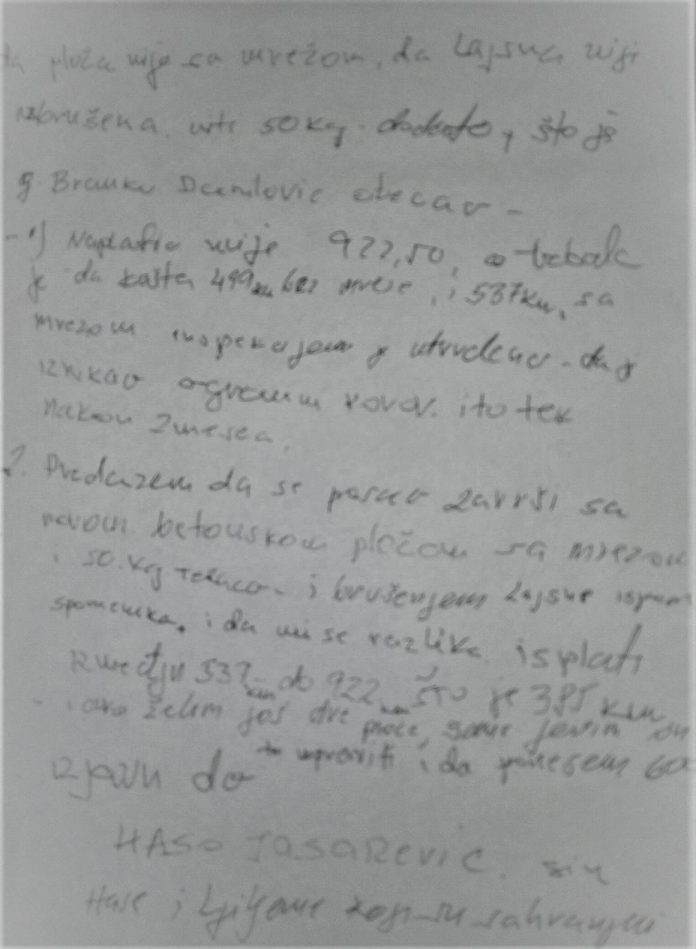 da ploča nije sa mrežom, da Lajsna nije
izbrušena. niti 50 kg. dodato, što je
g. Branku Danilovic obecao -
- 1) Naplatio nije 922,50, a trebalo
je da košta 499 km bez mreže, i 537 km, sa
mrežom inspekcijom je utvrđeno - da je
iznikao ogromni korov. i to tek
nakon 2 meseca.
2. Predlazem da se posao završi sa
novom betonskom pločom sa mrezom
i 50 kg teraco - i brušenjem Lajsne ispred
spomenika. i da mi se razlika isplati
između 537 km do 922 km što je 385 km
- i ako želim još dve ploče, samo javim
to upraviti i da ponesem
izjavu do
HASO JASAREVIC. sin
Hase i Ljiljane koji su sahranjeni